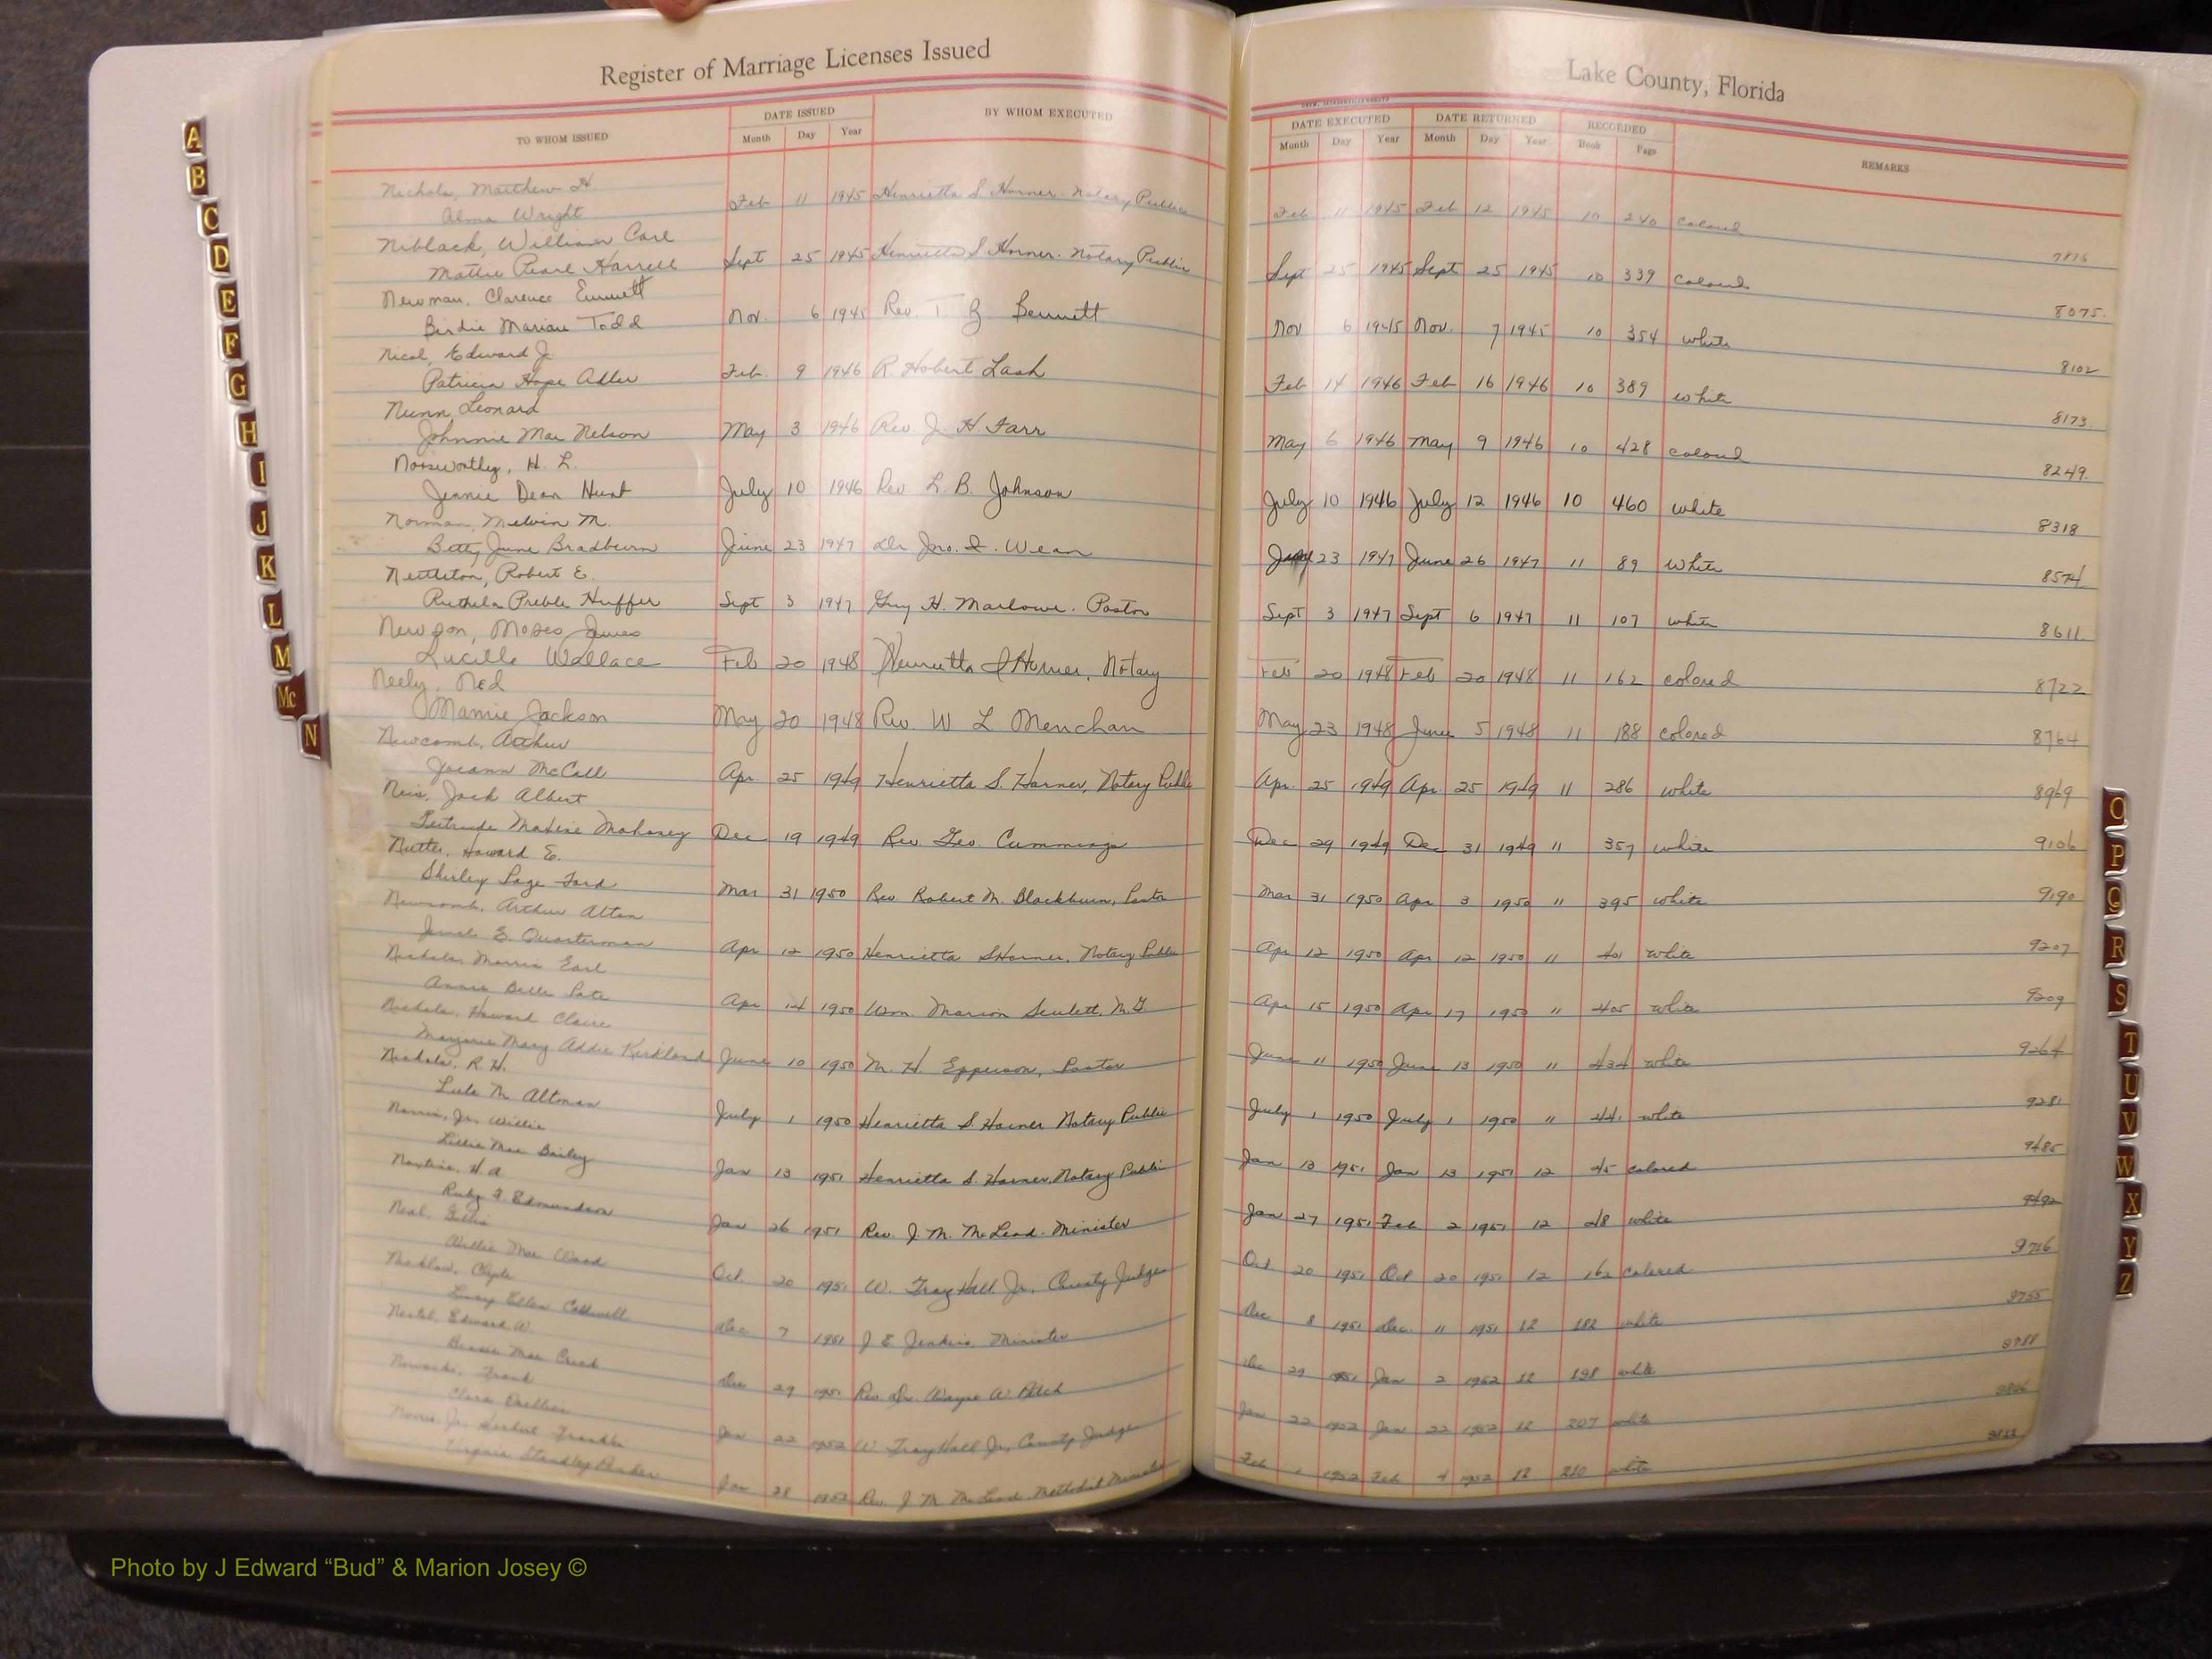 Register of Marriage Licenses Issued
Lake County, Florida
TO WHOM ISSUED DATE ISSUED Month Day Year BY WHOM EXECUTED
DATE EXECUTED Month Day Year DATE RETURNED Month Day Year RECORDED Book Page REMARKS
Nichols, Matthew H
Alma Wright Feb 11 1945 Henrietta S Horner. Notary Public Feb 11 1945 Feb 12 1945 10 240 colored 7876
Niblack, William Carl
Mattie Pearl Harrell Sept 25 1945 Henrietta S Horner. Notary Public Sept 25 1945 Sept 25 1945 10 339 colored 8075.
Newman, Clarence Emmett
Birdie Marian Todd Nov. 6 1945 Rev. Bennett Nov 6 1945 Nov. 7 1945 10 354 white 8102
Nicol, Edward J.
Patricia Hope Adler Feb. 9 1946 R Hobert Lash Feb 14 1946 Feb 16 1946 10 389 white 8173
Nunn, Leonard
Johnnie Mae Nelson May 3 1946 Rev. J. H Farr May 6 1946 May 9 1946 10 428 colored 8249.
Norsworthy, H. L.
Jennie Dean Hunt July 10 1946 Rev L. B. Johnson July 10 1946 July 12 1946 10 460 white 8318
Norman, Melvin M.
Betty June Bradburn June 23 1947 Dr Jno. Wean 23 1947 June 26 1947 11 89 White 8574
Nettleton, Robert E.
Preble Huffer Sept 3 1947 Guy H. Marlowe. Pastor Sept 3 1947 Sept 6 1947 11 107 white 8611
Newson, Moses James
Lucille Wallace Feb 20 1948 Henrietta S Horner, Notary Feb 20 1948 Feb 20 1948 11 162 colored 8722
Neely, Ned
Mamie Jackson May 20 1948 Rev. W L Menchan May 23 1948 June 5 1948 11 188 colored 8764
Newcomb, Arthur
Joeann McCall Apr. 25 1949 Henrietta S. Horner, Notary Public Apr. 25 1949 Apr. 25 1949 11 286 white 8969
Neis, Jack Albert
Gertrude Maxine Mahoney Dec 19 1949 Rev. Geo. Cummings Dec 29 1949 Dec 31 1949 " 357 white 9106
Nutter, Howard E.
Shirley Page Ford Mar 31 1950 Rev Robert M. Blackburn, Pastor Mar 31 1950 Apr 3 1950 " 395 white 9190
Newcomb, Arthur Alton
E. Quarterman Apr 12 1950 Henrietta S Horner, Notary Public Apr 12 1950 Apr 12 1950 " 401 white 9207
Nichols, Morris Earl
Annie Belle Pate Apr 14 1950 Wm. Marion M.G Apr 15 1950 Apr 17 1950 " 405 white 9209
Nichols, Howard Claire
Marjorie Mary Addie Kirkland June 10 1950 M. H. Epperson, Pastor June 11 1950 June 13 1950 " 434 white 9264
Nichols, R. H.
Lula M Altman July 1 1950 Henrietta S Horner Notary Public July 1 1950 July 1 1950 " 441 white 9281
Norris, Jr. Willie
Lillie Mae Bailey Jan 13 1951 Henrietta S. Horner, Notary Public Jan 13 1951 Jan 13 1951 12 45 colored 9485
H. A
Ruby F. Edmundson Jan 26 1951 Rev. J. M. McLeod. Minister Jan 27 1951 Feb 2 1951 12 48 white 9492
Neal,
Willie Mae Wood Oct. 20 1951 W. Troy Hall Jr., County Judge Oct 20 1951 Oct 20 1951 12 162 colored 9716
Clyde
Lucy Ellen Dec 7 1951 J E Jenkins Minister Dec 8 1951 Dec. 11 1951 12 182 white 9755
Edward W.
Bessie Mae Creek Dec 29 1951 Rev Dr. Wayne W. Dec 29 1951 Jan 2 1952 12 198 white
Frank
Clara Jan 22 1952 W Troy Hall Jr, County Judge Jan 22 1952 Jan 22 1952 12 207 white
Jr. Herbert Franklin
Virginia Standley Jan 28 1952 Rev. J M McLeod Methodist Minister Feb 1 1952 Feb 4 1952 12 210 white
A
B
C
D
E
F
G
H
I
J
K
L
M
Mc
N
O
P
Q
R
S
T
U
V
W
X
Y
Z
Photo by J Edward “Bud” & Marion Josey ©